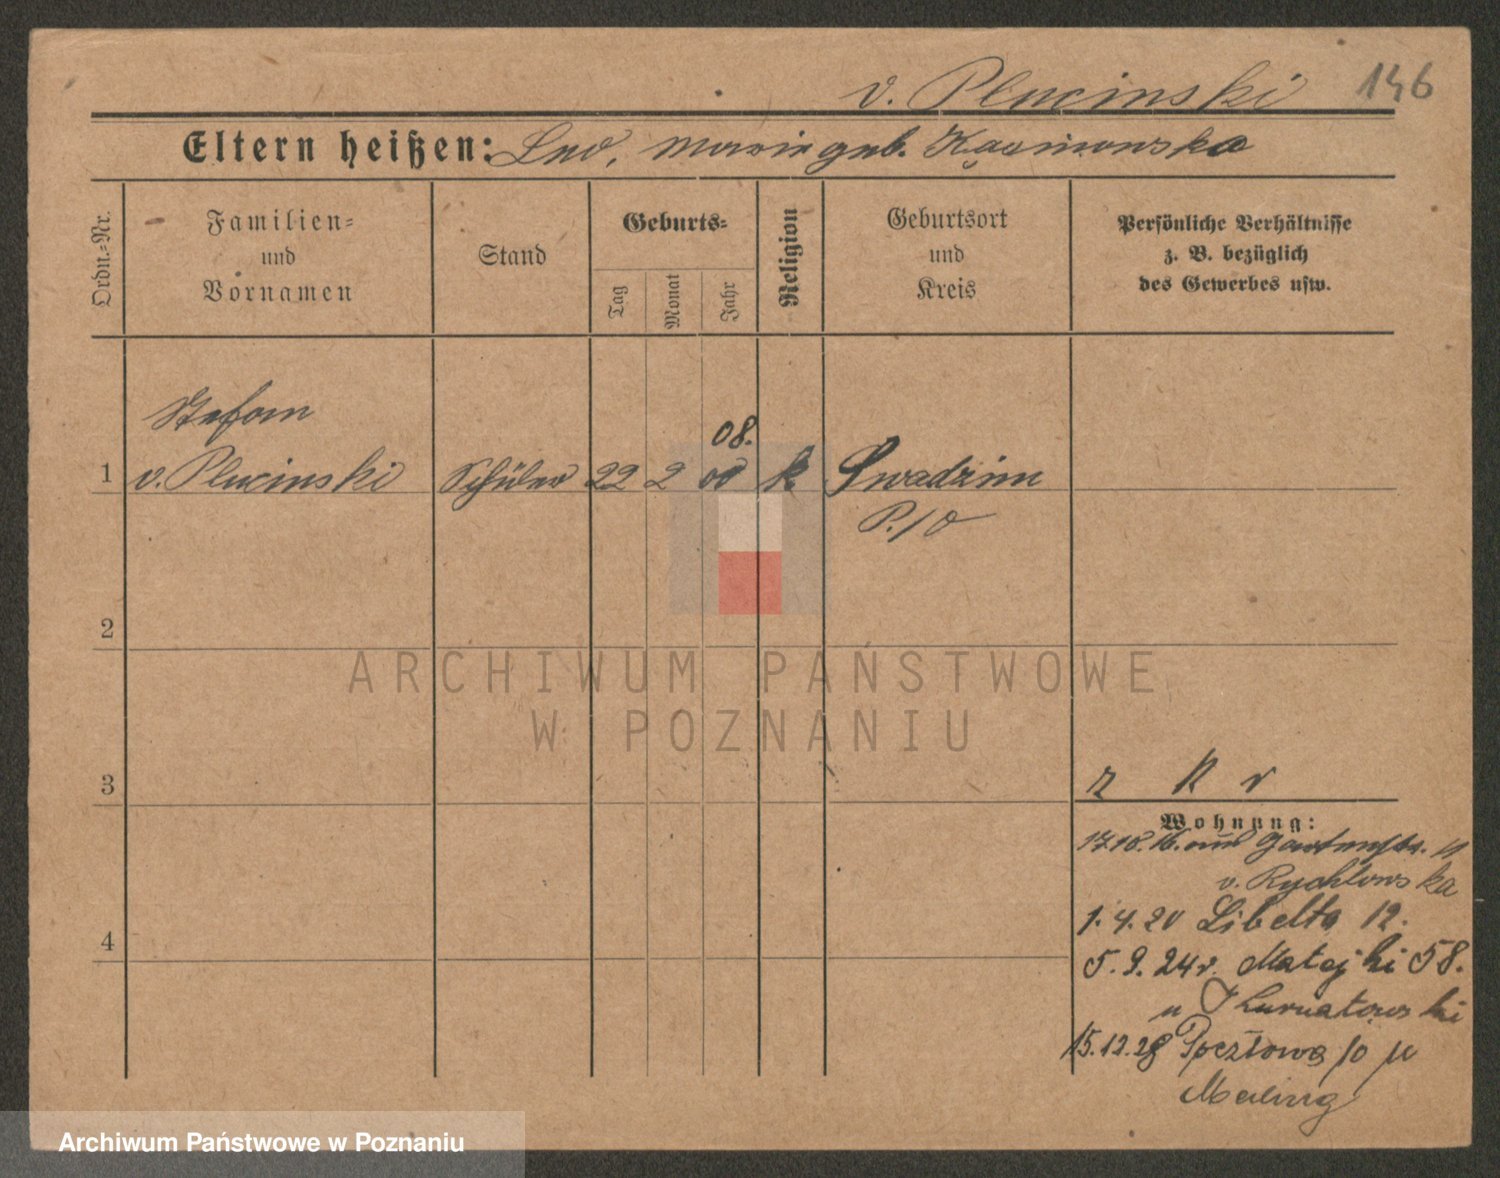 v. Plucinski 146
Eltern heißen: Leo, Marie geb.
Ordn.-Nr.
Familien-
und
Vornamen
Stand
Geburts-
Tag
Monat
Jahr
Religion
Geburtsort
und
Kreis
Persönliche Verhältnisse
z. B. bezüglich
des Gewerbes usw.
Stefan
08.
1 v. Plucinski Schüler 22 2 00 k Swadzim
P./O
2
ARCHIWUM PAŃSTWOWE
W POZNANIU
3
r k v
Wohnung:
Gartenstr.
v. Rychlowska
1.4.20 Libelta 12.
4
5.9.24 v. Matejki 58.
Kurnatowski
15.12.28 Pocztowa 10
Meiling
Archiwum Państwowe w Poznaniu